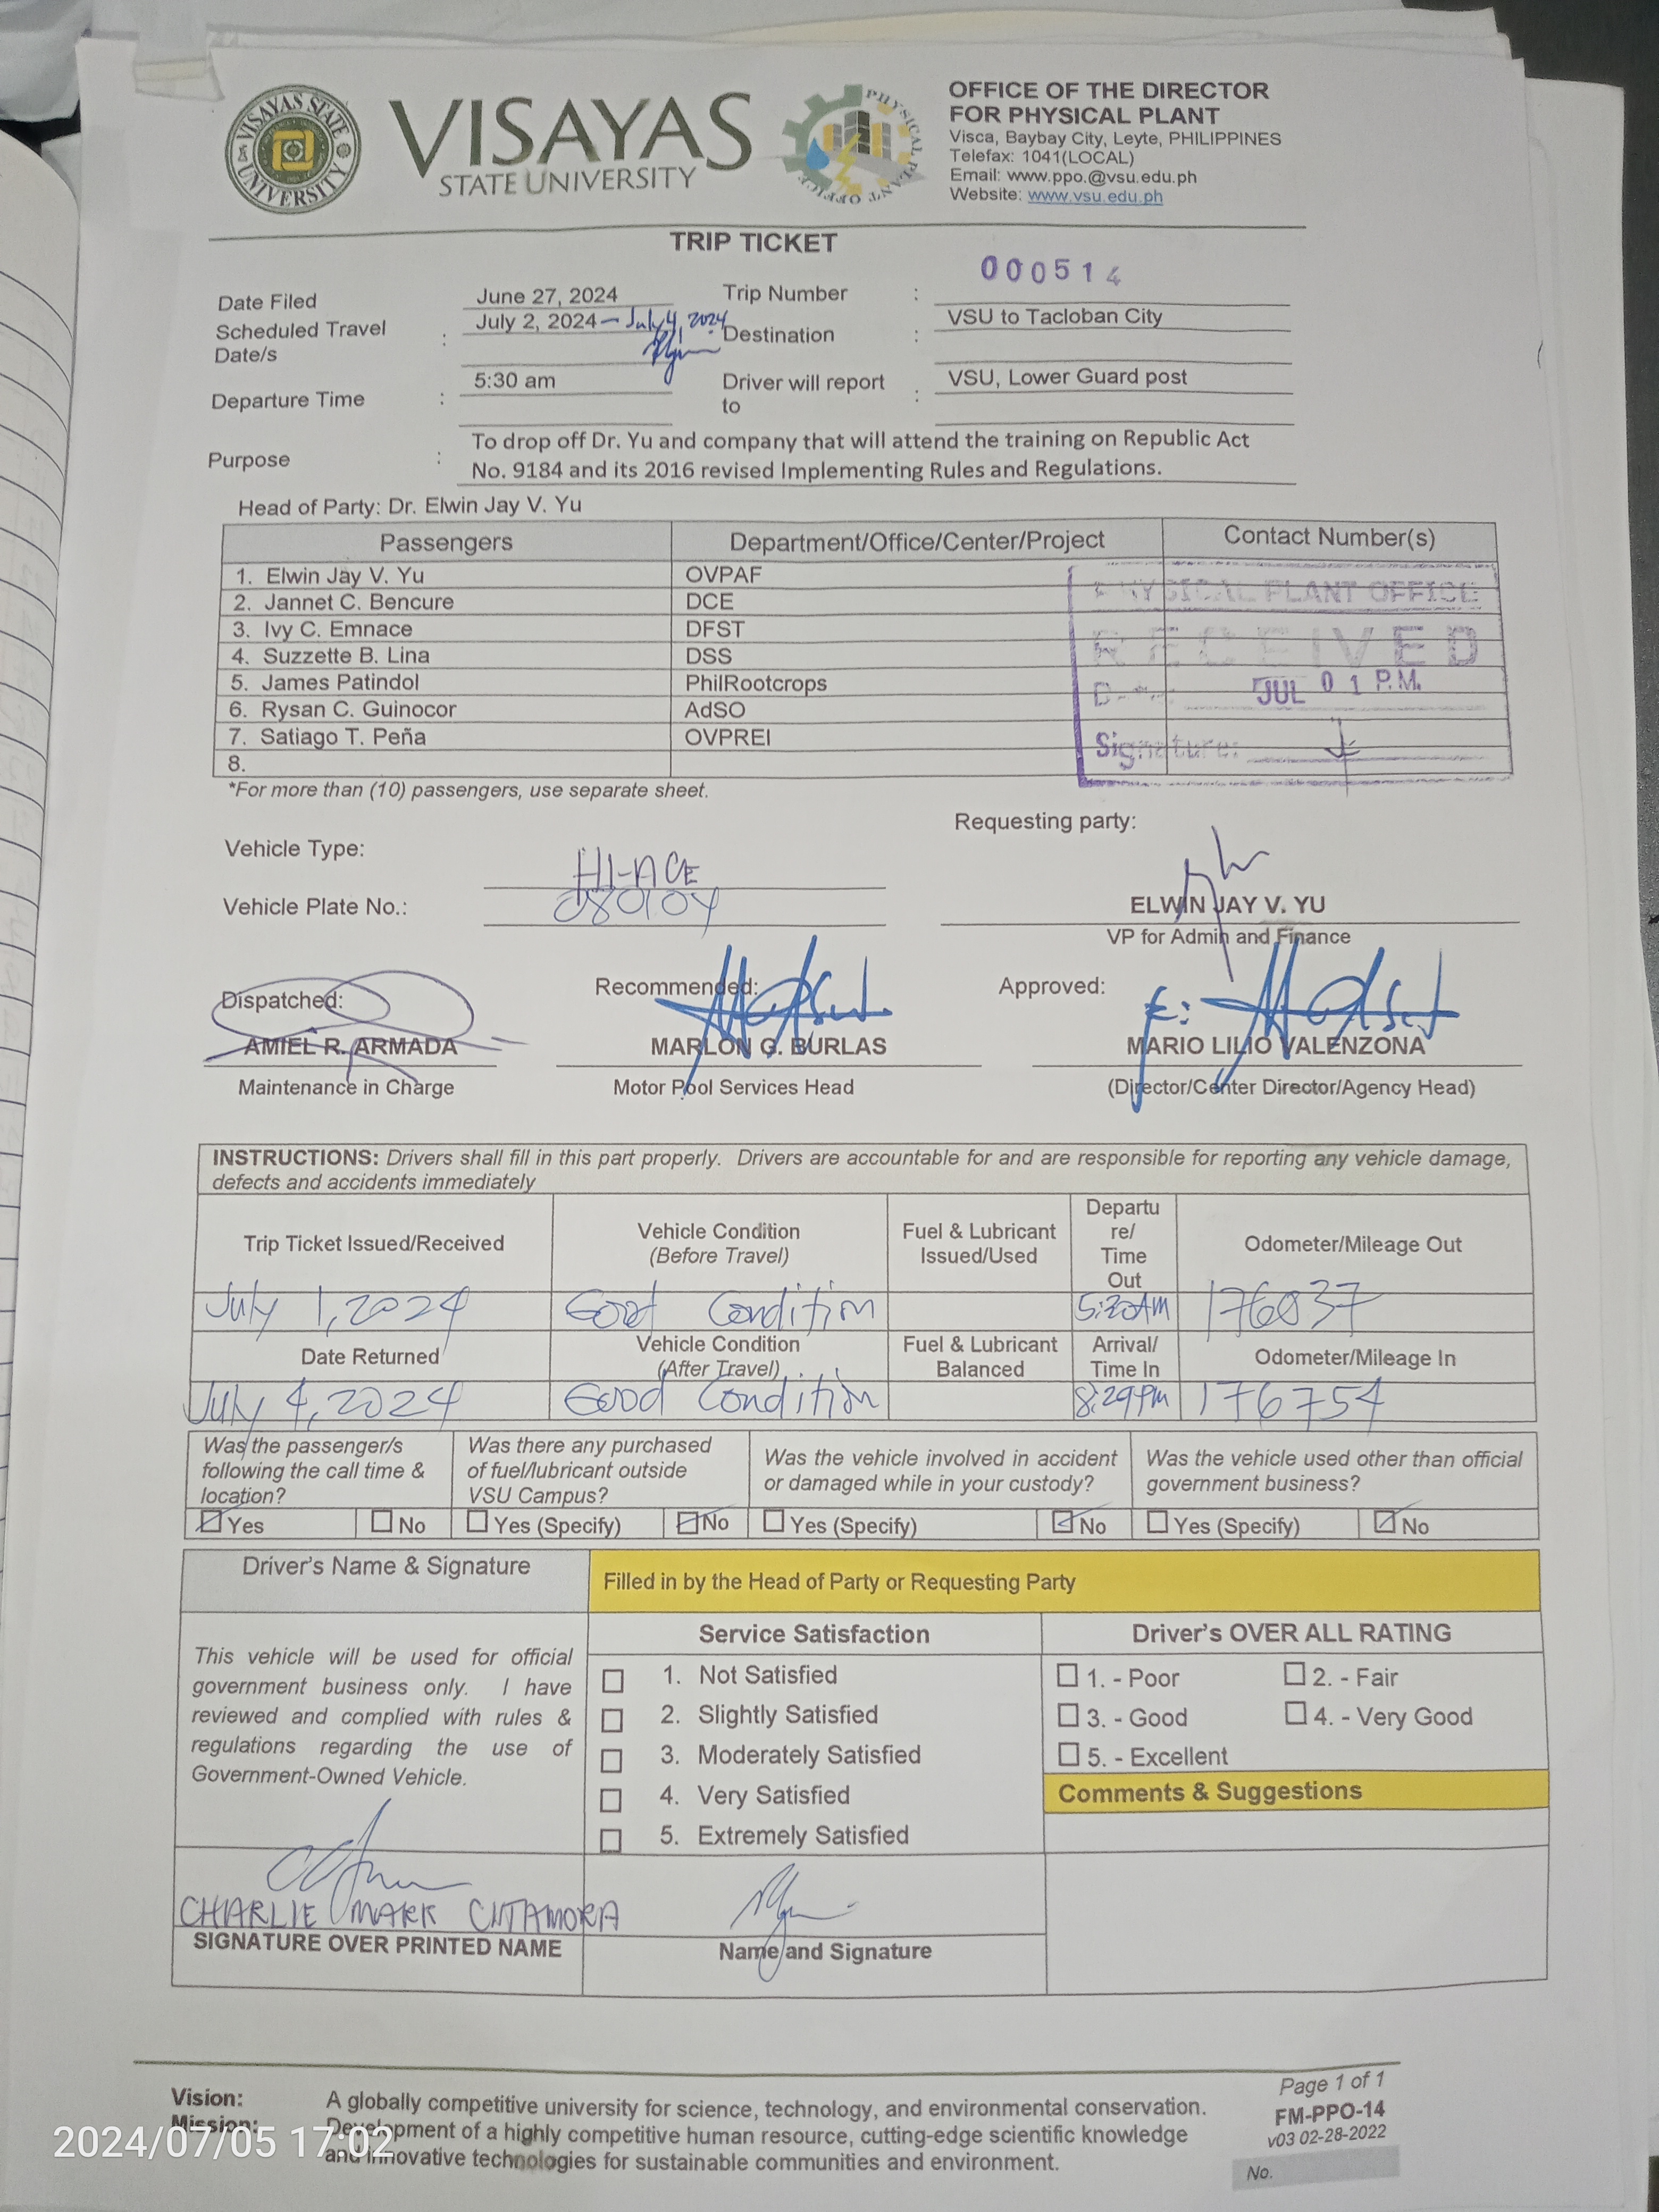 VISAYAS STATE UNIVERSITY
VISAYAS
STATE UNIVERSITY
PHYSICAL PLANT OFFICE
OFFICE OF THE DIRECTOR
FOR PHYSICAL PLANT
Visca, Baybay City, Leyte, PHILIPPINES
Telefax: 1041(LOCAL)
Email: www.ppo.@vsu.edu.ph
Website: www.vsu.edu.ph
TRIP TICKET
000514
Date Filed June 27, 2024 Trip Number :
Scheduled Travel Date/s : July 2, 2024 – July 4, 2024 Destination : VSU to Tacloban City
Departure Time : 5:30 am Driver will report to : VSU, Lower Guard post
Purpose : To drop off Dr. Yu and company that will attend the training on Republic Act
No. 9184 and its 2016 revised Implementing Rules and Regulations.
Head of Party: Dr. Elwin Jay V. Yu
Passengers Department/Office/Center/Project Contact Number(s)
1. Elwin Jay V. Yu OVPAF
2. Jannet C. Bencure DCE
3. Ivy C. Emnace DFST
4. Suzzette B. Lina DSS
5. James Patindol PhilRootcrops
6. Rysan C. Guinocor AdSO
7. Satiago T. Peña OVPREI
8.
PHYSICAL PLANT OFFICE
RECEIVED
JUL 01 P.M.
Signature:
*For more than (10) passengers, use separate sheet.
Requesting party:
Vehicle Type: HI-ACE
Vehicle Plate No.: 080104
ELWIN JAY V. YU
VP for Admin and Finance
Dispatched: Recommended: Approved:
AMIEL R. ARMADA MARLON G. BURLAS MARIO LILIO VALENZONA
Maintenance in Charge Motor Pool Services Head (Director/Center Director/Agency Head)
INSTRUCTIONS: Drivers shall fill in this part properly. Drivers are accountable for and are responsible for reporting any vehicle damage,
defects and accidents immediately
Trip Ticket Issued/Received Vehicle Condition (Before Travel) Fuel & Lubricant Issued/Used Departu re/ Time Out Odometer/Mileage Out
July 1, 2024 Good Condition 5:30AM 176037
Date Returned Vehicle Condition (After Travel) Fuel & Lubricant Balanced Arrival/ Time In Odometer/Mileage In
July 4, 2024 Good Condition 8:29PM 176754
Was the passenger/s following the call time & location? Was there any purchased of fuel/lubricant outside VSU Campus? Was the vehicle involved in accident or damaged while in your custody? Was the vehicle used other than official government business?
Yes No Yes (Specify) No Yes (Specify) No Yes (Specify) No
Driver's Name & Signature Filled in by the Head of Party or Requesting Party
Service Satisfaction Driver's OVER ALL RATING
This vehicle will be used for official
government business only. I have
reviewed and complied with rules &
regulations regarding the use of
Government-Owned Vehicle.
1. Not Satisfied
2. Slightly Satisfied
3. Moderately Satisfied
4. Very Satisfied
5. Extremely Satisfied
1. - Poor 2. - Fair
3. - Good 4. - Very Good
5. - Excellent
Comments & Suggestions
CHARLIE MARK CUTAMORA
SIGNATURE OVER PRINTED NAME Name and Signature
Vision: A globally competitive university for science, technology, and environmental conservation.
Mission: Development of a highly competitive human resource, cutting-edge scientific knowledge
and innovative technologies for sustainable communities and environment.
Page 1 of 1
FM-PPO-14
v03 02-28-2022
No.
2024/07/05 17:02